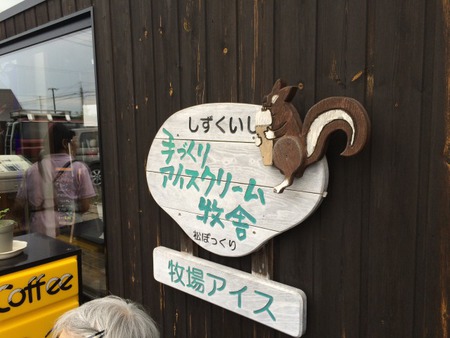 しずくいし
手づくり
アイスクリーム
牧舎
松ぼっくり
牧場アイス
Coffee